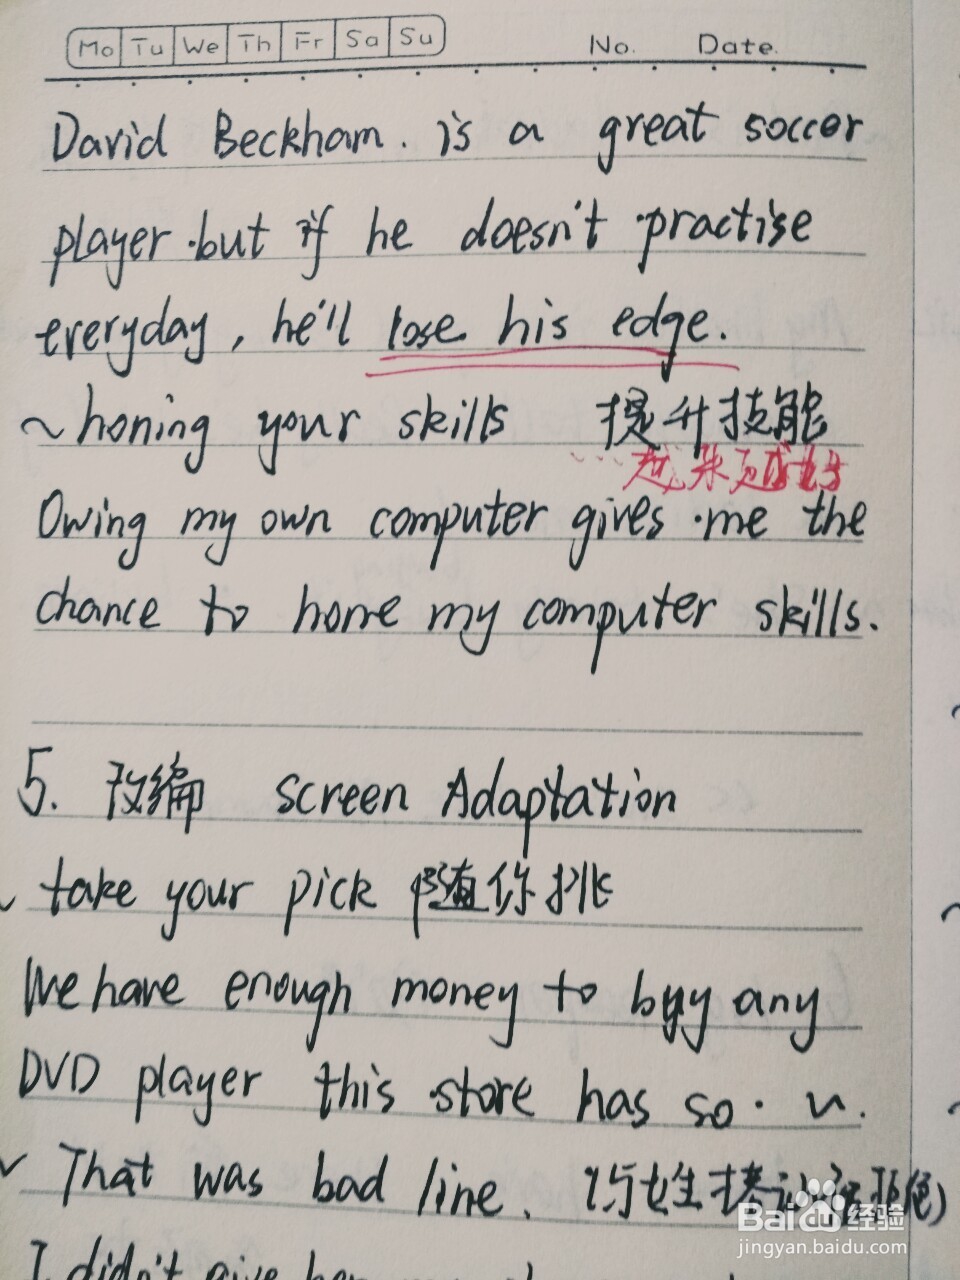 Mo Tu We Th Fr Sa Su No. Date.
David Beckham. is a great soccer
player but if he doesn't practise
everyday, he'll lose his edge.
~ honing your skills 提升技能
... 越来越好
Owing my own computer gives me the
chance to hone my computer skills.
5. 改编 Screen Adaptation
take your pick 随你挑
We have enough money to byy any
DVD player this store has so ~.
✓ That was bad line.
Bai 经验
jingyan.baidu.com
I didn't give her